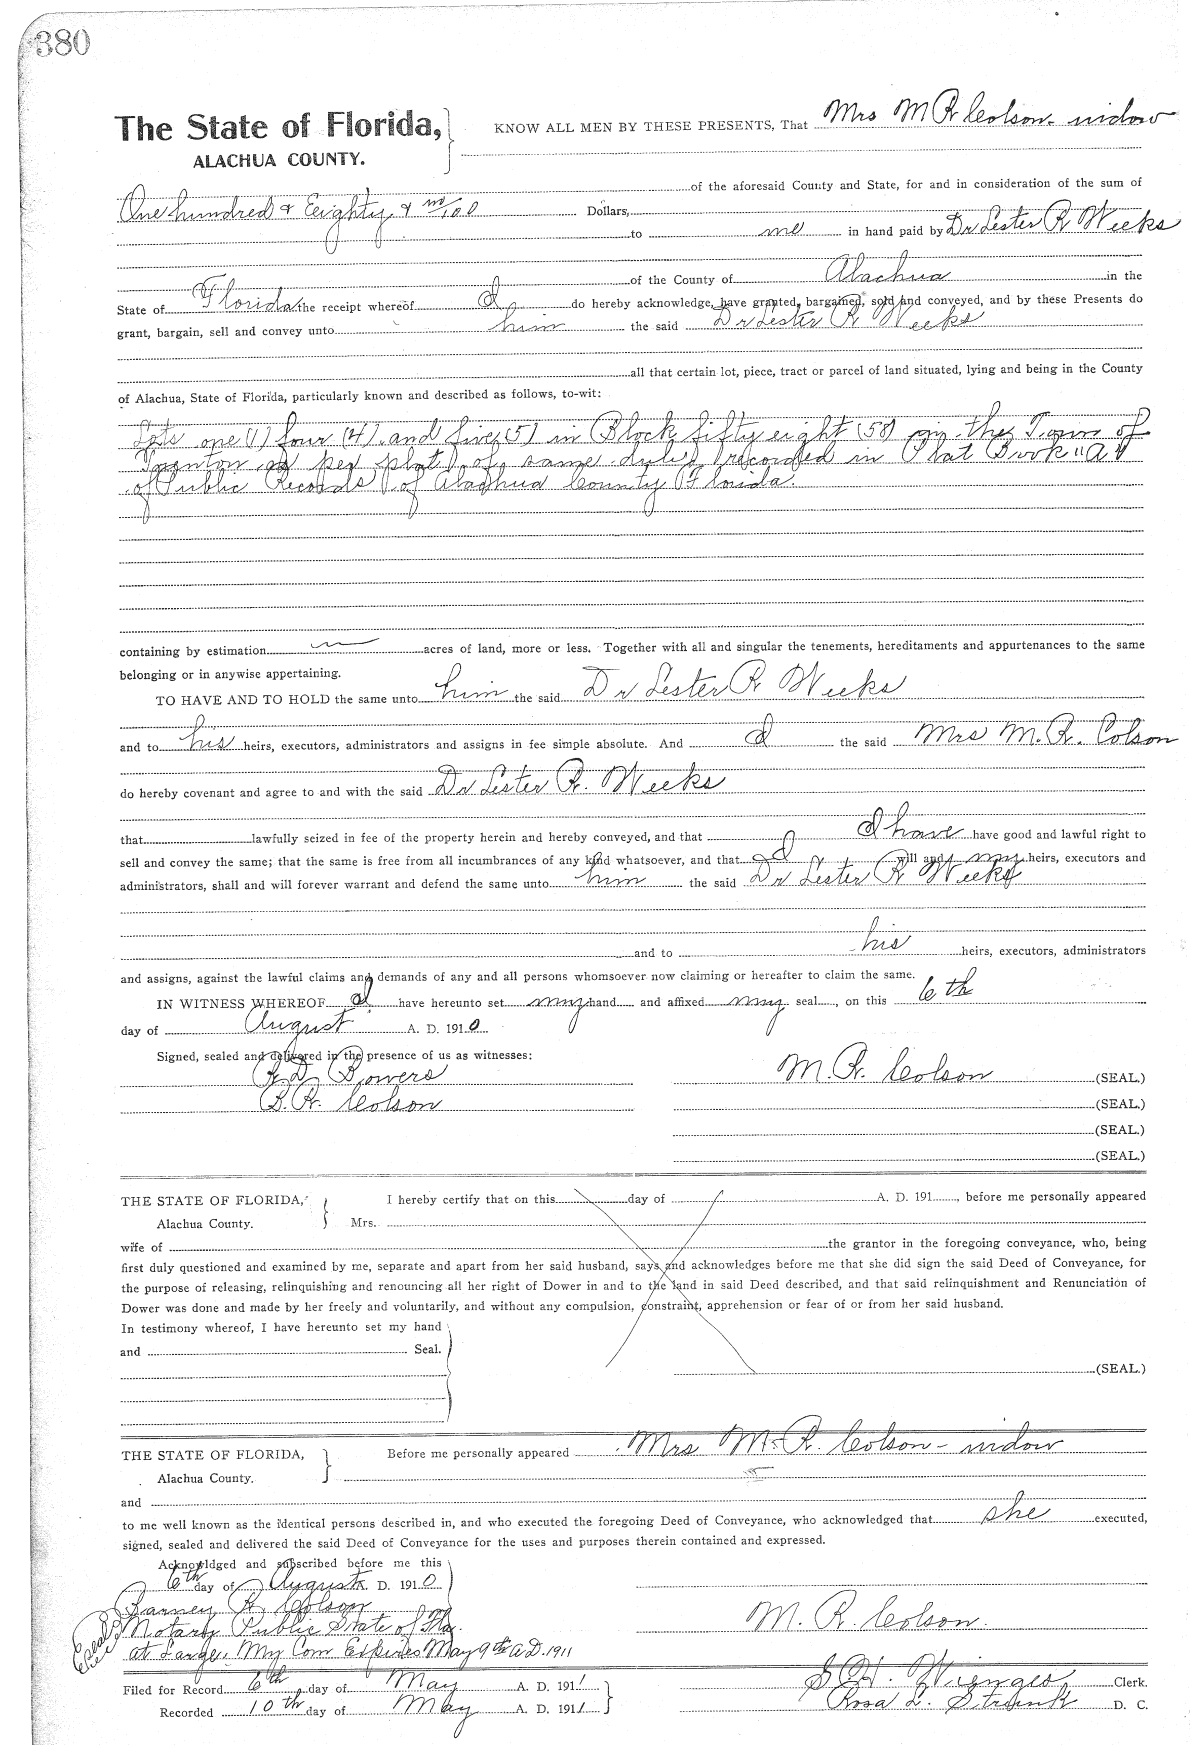 380
The State of Florida,
ALACHUA COUNTY.
KNOW ALL MEN BY THESE PRESENTS, That Mrs M R Colson - widow
of the aforesaid County and State, for and in consideration of the sum of
One hundred & Eighty & no/100 Dollars,
to me in hand paid by Dr Lester R Weeks
of the County of Alachua in the
State of Florida the receipt whereof I do hereby acknowledge, have granted, bargained, sold and conveyed, and by these Presents do
grant, bargain, sell and convey unto him the said Dr Lester R Weeks
all that certain lot, piece, tract or parcel of land situated, lying and being in the County
of Alachua, State of Florida, particularly known and described as follows, to-wit:
Lots one (1) four (4) and five (5) in Block fifty eight (58) in the Town of
as per plat of same duly recorded in Plat Book "A"
of Public Records of Alachua County Florida.
containing by estimation acres of land, more or less. Together with all and singular the tenements, hereditaments and appurtenances to the same
belonging or in anywise appertaining.
TO HAVE AND TO HOLD the same unto him the said Dr Lester R Weeks
and to his heirs, executors, administrators and assigns in fee simple absolute. And I the said Mrs M. R. Colson
do hereby covenant and agree to and with the said Dr Lester R. Weeks
that lawfully seized in fee of the property herein and hereby conveyed, and that I have have good and lawful right to
sell and convey the same; that the same is free from all incumbrances of any kind whatsoever, and that I will and my heirs, executors and
administrators, shall and will forever warrant and defend the same unto him the said Dr Lester R Weeks
and to his heirs, executors, administrators
and assigns, against the lawful claims and demands of any and all persons whomsoever now claiming or hereafter to claim the same.
IN WITNESS WHEREOF I have hereunto set my hand and affixed my seal, on this 6th
day of August A. D. 1910
Signed, sealed and delivered in the presence of us as witnesses:
R. D. Bowers M. R. Colson (SEAL.)
B. R. Colson (SEAL.)
(SEAL.)
(SEAL.)
THE STATE OF FLORIDA, I hereby certify that on this day of A. D. 191 , before me personally appeared
Alachua County. Mrs.
wife of the grantor in the foregoing conveyance, who, being
first duly questioned and examined by me, separate and apart from her said husband, says and acknowledges before me that she did sign the said Deed of Conveyance, for
the purpose of releasing, relinquishing and renouncing all her right of Dower in and to the land in said Deed described, and that said relinquishment and Renunciation of
Dower was done and made by her freely and voluntarily, and without any compulsion, constraint, apprehension or fear of or from her said husband.
In testimony whereof, I have hereunto set my hand
and Seal.
(SEAL.)
THE STATE OF FLORIDA, Before me personally appeared Mrs M. R. Colson - widow
Alachua County.
and
to me well known as the identical persons described in, and who executed the foregoing Deed of Conveyance, who acknowledged that she executed,
signed, sealed and delivered the said Deed of Conveyance for the uses and purposes therein contained and expressed.
Acknowldged and subscribed before me this
6th day of August A. D. 1910
Barney R Colson
Notary Public State of Fla. M. R. Colson.
at Large. My Com Expires May 9th A.D. 1911
Filed for Record 6th day of May A. D. 1911 S. H. Wienges Clerk.
Recorded 10th day of May A. D. 1911 Rosa L. Strunk D. C.